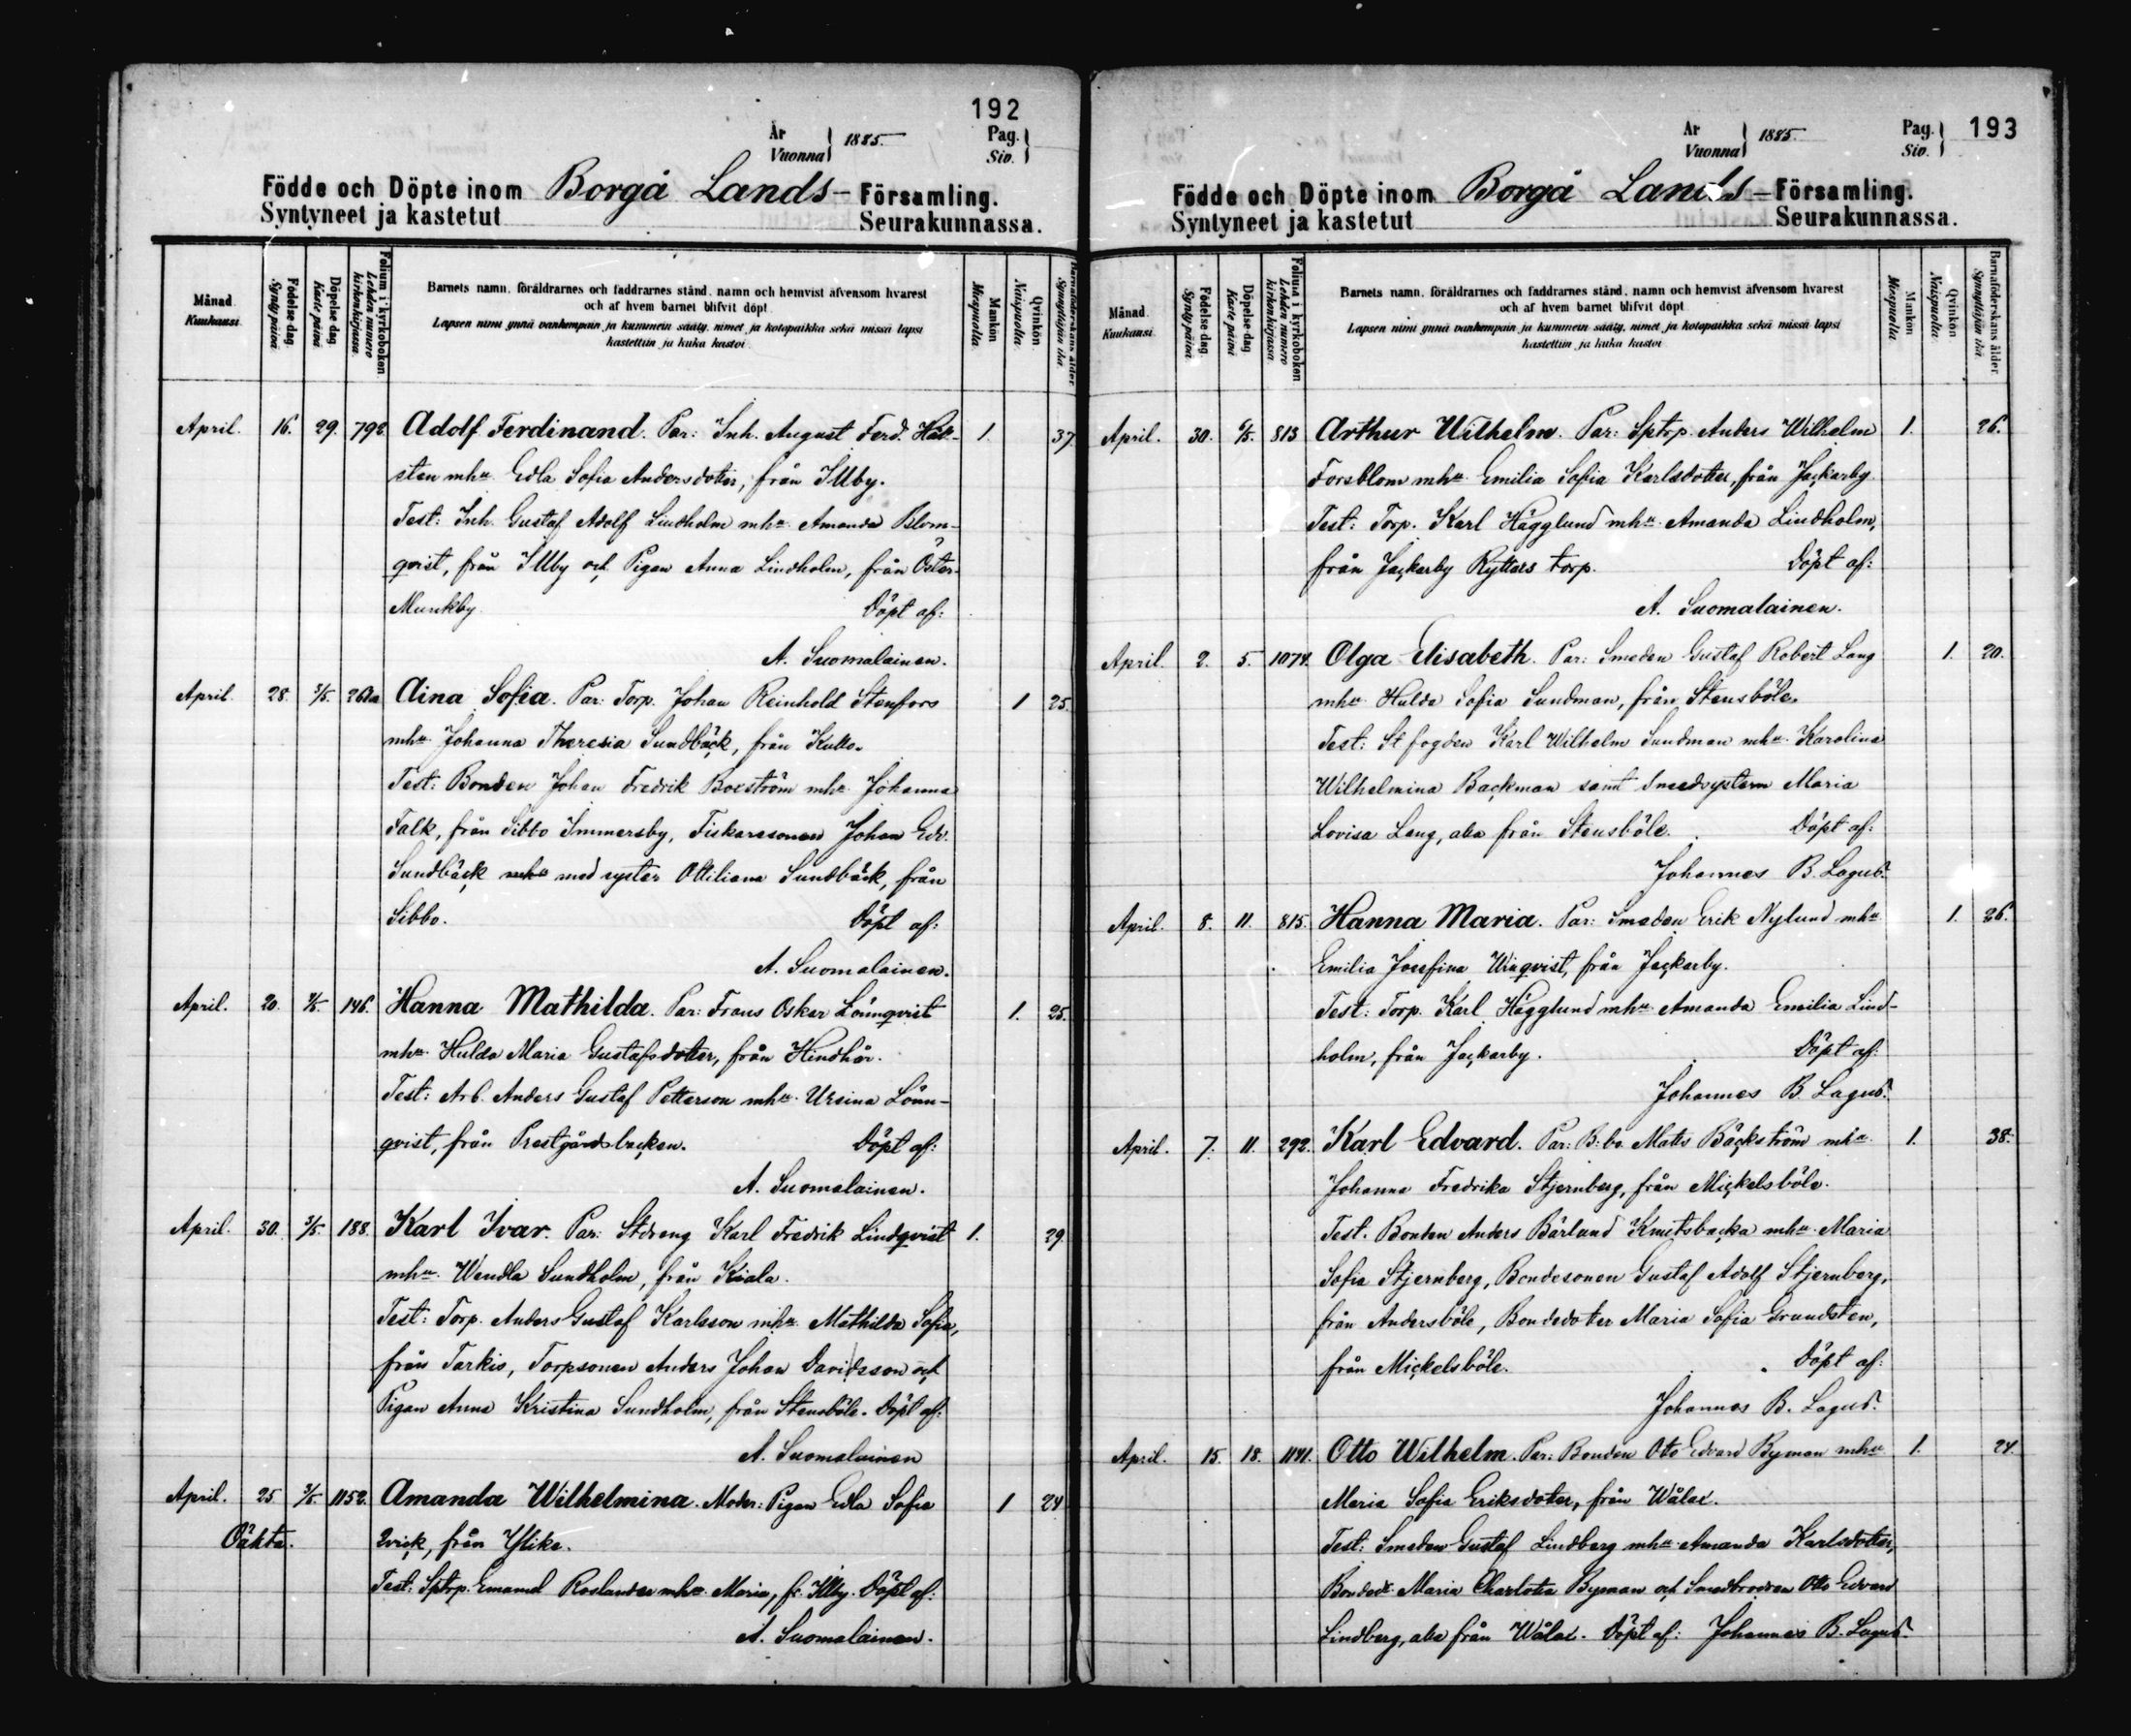 192
År
Vuonna
1885.
Pag.
Siv.
Födde och Döpte inom Borgå Lands- Församling.
Syntyneet ja kastetut Seurakunnassa.
Månad.
Kuukausi.
Födelsedag.
Syntypäivä.
Döpelsedag.
Kastepäivä.
Folium i kyrkoboken
Lehden numero kirkonkirjassa
Barnets namn, föräldrarnes och faddrarnes stånd, namn och hemvist äfvensom hvarest
och af hvem barnet blifvit döpt.
Lapsen nimi ynnä vanhempain ja kummein sääty, nimet ja kotopaikka sekä missä lapsi
kastettiin ja kuka kastoi.
Mankön
Miespuolta.
Qvinkön
Naispuolta.
Barnaföderskans ålder.
Synnyttäjän ikä.
April. 16. 29. 792 Adolf Ferdinand. Par: Inh. August Ferd. Häl- 1. 37
sten mhu Edla Sofia Andersdotter, från Illby.
Test: Inh. Gustaf Adolf Lindholm mhu Amanda Blom-
qvist, från Illby och Pigan Anna Lindholm, från Öster-
Munkby. Döpt af:
A. Suomalainen.
April. 28. 3/5. Aina Sofia. Par: Torp. Johan Reinhold Stenfors 1 25.
mhu Johanna Theresia Sundbäck, från Kullo.
Test: Bonden Johan Fredrik Boxström mhu Johanna
Falk, från Sibbo Immersby, Fiskaresonen Johan Edv.
Sundbäck mhu med syster Ottiliana Sundbäck, från
Sibbo. Döpt af:
A. Suomalainen.
April. 20. 146. Hanna Mathilda. Par: Frans Oskar Lönnqvist 1. 25.
mhu Hulda Maria Gustafsdotter, från Hindhår.
Test: Arb. Anders Gustaf Petterson mhu Ursina Lönn-
qvist, från Prestgårdsbacken. Döpt af:
A. Suomalainen.
April. 30. 3/5. 188. Karl Ivar. Par: Stdreng Karl Fredrik Lindqvist 1. 29.
mhu Wendla Sundholm, från Kiala.
Test: Torp. Anders Gustaf Karlsson mhu Mathilda Sofia,
från Tarkis, Torpsonen Anders Johan Davidsson och
Pigan Anna Kristina Sundholm, från Stensböle. Döpt af:
A. Suomalainen
April. 25. 3/5. 1152. Amanda Wilhelmina. Moder: Pigan Edla Sofia 1 24
Oäkta. Qvick, från Yllike.
Test: Sptrp. Emanuel Roslander mhu Maria, fr. Illby. Döpt af:
A. Suomalainen.
År
Vuonna
1885.
Pag.
Siv.
193
Födde och Döpte inom Borgå Lands- Församling.
Syntyneet ja kastetut Seurakunnassa.
Månad.
Kuukausi.
Födelsedag.
Syntypäivä.
Döpelsedag.
Kastepäivä.
Folium i kyrkoboken
Lehden numero kirkonkirjassa
Barnets namn, föräldrarnes och faddrarnes stånd, namn och hemvist äfvensom hvarest
och af hvem barnet blifvit döpt.
Lapsen nimi ynnä vanhempain ja kummein sääty, nimet ja kotopaikka sekä missä lapsi
kastettiin ja kuka kastoi.
Mankön
Miespuolta
Qvinkön
Naispuolta
Barnaföderskans ålder.
Synnyttäjän ikä.
April. 30. 6/5. 813 Arthur Wilhelm. Par: Sptrp. Anders Wilhelm 1. 26.
Forsblom mhu Emilia Sofia Karlsdotter, från Jackarby
Test: Torp. Karl Hägglund mhu Amanda Lindholm,
från Jackarby Ryttars torp. Döpt af:
A. Suomalainen.
April. 2. 5. 1074. Olga Elisabeth. Par: Smeden Gustaf Robert Lang 1. 20.
mhu Hulda Sofia Sundman, från Stensböle.
Test: Stfogden Karl Wilhelm Sundman mhu Karolina
Wilhelmina Backman samt Smedsystern Maria
Lovisa Lang, alla från Stensböle. Döpt af:
Johannes B. Lagus.
April. 8. 11. 815. Hanna Maria. Par: Smeden Erik Nylund mhu 1. 26.
Emilia Josefina Winqvist, från Jackarby.
Test: Torp. Karl Hägglund mhu Amanda Emilia Lind-
holm, från Jackarby. Döpt af:
Johannes B. Lagus.
April. 7. 11. 292. Karl Edvard. Par: B:be Matts Bäckström mhu 1. 38.
Johanna Fredrika Stjernberg, från Mickelsböle.
Test. Bonden Anders Bärlund Knutsbacka mhu Maria
Sofia Stjernberg, Bondesonen Gustaf Adolf Stjernberg,
från Andersböle, Bondedoter Maria Sofia Grundsten,
från Mickelsböle. Döpt af:
Johannes B. Lagus.
April. 15. 18. 1141. Otto Wilhelm. Par: Bonden Otto Edvard Byman mhu 1. 24.
Maria Sofia Eriksdoter, från Wålax.
Test: Smeden Gustaf Lindberg mhu Amanda Karlsdotter,
Bonded. Maria Charlotta Byman och Smedbrodren Otto Edvard
Lindberg, alla från Wålax. Döpt af: Johannes B. Lagus.